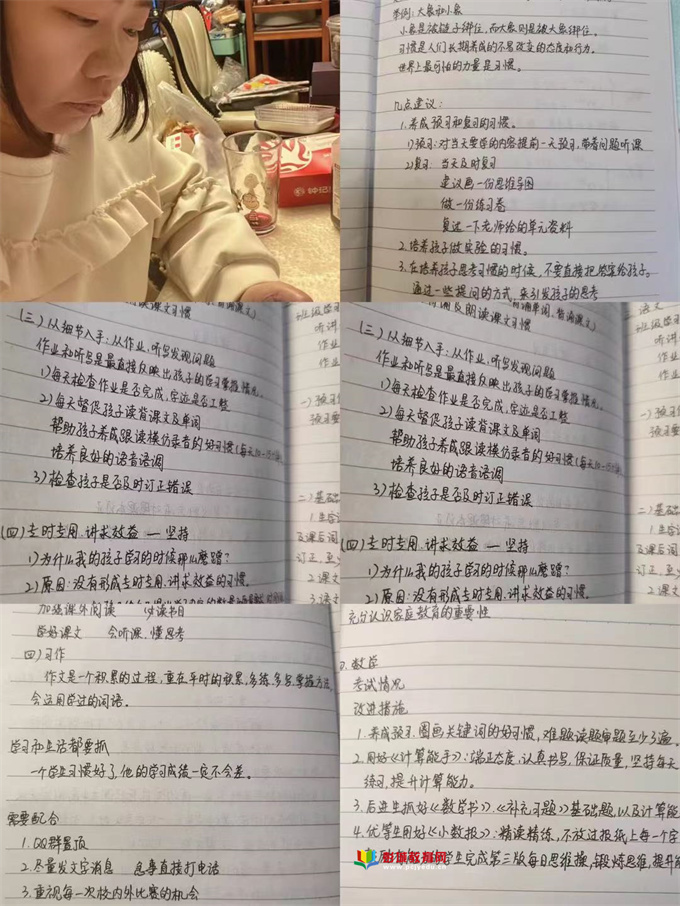 举例：大象和小象
小象是被链子绑住，而大象则是被大象绑住。
习惯是人们长期养成的不易改变的态度和行为。
世界上最可怕的力量是习惯。
几点建议：
1.养成预习和复习的习惯。
1)预习：对当天要学的内容提前一天预习，带着问题听课
2)复习：当天及时复习
建议画一份思维导图
做一份练习卷
复述一下老师给的单元资料
2.培养孩子做实验的习惯。
3.在培养孩子思考习惯的时候，不要直接把答案给孩子。
通过一些提问的方式，来引发孩子的思考
(三)从细节入手：从作业，听写发现问题
作业和听写是最直接反映出孩子的学习掌握情况。
1)每天检查作业是否完成，字迹是否工整
2)每天督促孩子读背课文及单词
帮助孩子养成跟读模仿录音的好习惯(每天10-15分钟)
培养良好的语音语调
3)检查孩子是否及时订正错误
(四)专时专用，讲求效益 — 坚持
1)为什么我的孩子学习的时候那么磨蹭？
2)原因：没有形成专时专用，讲求效益的习惯。
及朗读课文习惯
(三)从细节入手：从作业，听写发现问题
作业和听写是最直接反映出孩子的学习掌握情况。
1)每天检查作业是否完成，字迹是否工整
2)每天督促孩子读背课文及单词
帮助孩子养成跟读模仿录音的好习惯(每天10-15分钟)
培养良好的语音语调
3)检查孩子是否及时订正错误
(四)专时专用，讲求效益 — 坚持
1)为什么我的孩子学习的时候那么磨蹭？
2)原因：没有形成专时专用，讲求效益的习惯。
加强课外阅读 必读书目
学好课文 会听课，懂思考
四)习作
作文是一个积累的过程，重在平时的积累，多练，多写，掌握方法，
会运用学过的词语。
学习和生活都要抓
一个学生习惯好了，他的学习成绩一定不会差。
需要配合
1.QQ群置顶
2.尽量发文字消息 急事直接打电话
3.重视每一次校内外比赛的机会
充分认识家庭教育的重要性
数学
考试情况
改进措施
1.养成预习，圈画关键词的好习惯，难题读题审题至少3遍。
2.用好《计算能手》：端正态度，认真书写，保证质量，坚持每天
练习，提升计算能力。
3.后进生抓好《数学书》、《补充习题》基础题，以及计算能
4.优等生用好《小数报》：精读精练，不放过报纸上每一个字
学生完成第三版每日思维操，锻炼思维，提升能